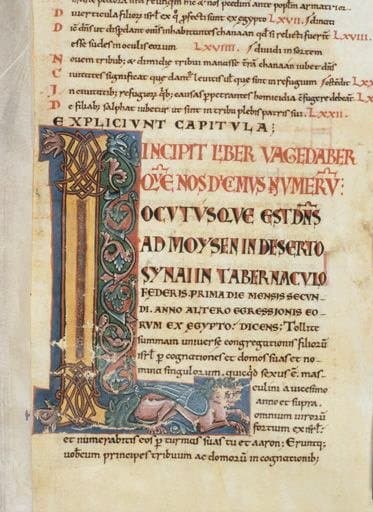 D iuerticula filiorum isrl ex quo profecti sunt ex egypto LXVII. Sdnati
D icens ut disperdant omnis inhabitantes chanaan qd si relicti fuerint LXVIII.
esse sudes in oculis eorum LXVIIII. Sduidi in sortem
N ouem tribub; ac dimidie tribui manasse
C iuitates significat que dantur leuitis uel que sunt in refugium LXX
I n euntib; refugiorum
D e filiab; salphat iubetur ut sint in tribu plebis patris sui. LXXII.
EXPLICIVNT CAPITVLA;
INCIPIT LIBER VAGEDABER
QVE NOS DICIMVS NVMERV:
LOCVTVSQVE EST DNS
AD MOYSEN IN DESERTO
SYNAI IN TABERNACVLO
FEDERIS. PRIMA DIE MENSIS SECVN-
DI. ANNO ALTERO EGRESSIONIS EO-
RVM EX EGYPTO. DICENS: Tollite
summam uniuerse congregationis filiorum
isrl p cognationes et domos suas et no-
mina singulorum. quicqd sexus e mas-
culini a uicesimo
anno et supra.
omnium uirorum
fortium ex isrl.
et numerabitis eos p turmas suas tu et aaron: Eruntq;
uobcum principes tribuum ac domorum in cognationib;